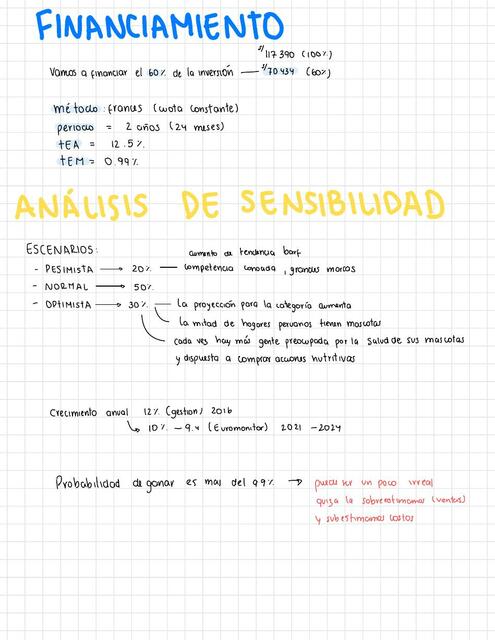 FINANCIAMIENTO
s/117 390 (100%)
Vamos a financiar el 60% de la inversión — s/70 434 (60%)
método: frances (cuota constante)
periodo = 2 años (24 meses)
tEA = 12.5%
tEM = 0.99%
ANÁLISIS DE SENSIBILIDAD
ESCENARIOS:
aumento de tendencia barf
- PESIMISTA → 20% — competencia conocida, grandes marcas
- NORMAL → 50%
- OPTIMISTA → 30% — la proyección para la categoría aumenta
la mitad de hogares peruanos tienen mascotas
cada ves hay más gente preocupada por la salud de sus mascotas
y dispuesta a comprar acciones nutritivas
Crecimiento anual 12% (gestion) 2016
↳ 10% - 9.4 (Euromonitor) 2021 - 2024
Probabilidad de ganar es mas del 99% → puede ser un poco irreal
quiza la sobreestimamos (ventas)
y subestimamos costos